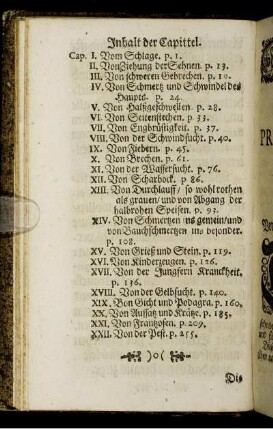 Inhalt der Capittel.
Cap. I. Vom Schlage. p. 1.
II. Von Ziehung der Sehnen. p. 13.
III. Von schweren Gebrechen. p. 19.
IV. Von Schmertz und Schwindel des
Haupts. p. 24.
V. Von Halßgeschwellen. p. 28.
VI. Von Seitenstechen. p. 33.
VII. Von Engbrüstigkeit. p. 37.
VIII. Von der Schwindsucht. p. 40.
IX. Von Fiebern. p. 45.
X. Von Brechen. p. 61.
XI. Von der Wassersucht. p. 76.
XII. Von Scharbock. p. 86.
XIII. Von Durchlauff / so wohl rothen
als grauen / und von Abgang der
halbrohen Speisen. p. 93.
XIV. Von Schmertzen ins gemein / und
von Bauchschmertzen ins besonder.
p. 108.
XV. Von Grieß und Stein. p. 119.
XVI. Von Kinderzeugen. p. 126.
XVII. Von der Jungfern Kranckheit.
p. 136.
XVIII. Von der Gelbsucht. p. 140.
XIX. Von Gicht und Podagra. p. 160.
XX. Von Aussatz und Krätze. p. 185.
XXI. Von Frantzosen. p. 209.
XXII. Von der Pest. p. 255.
Die